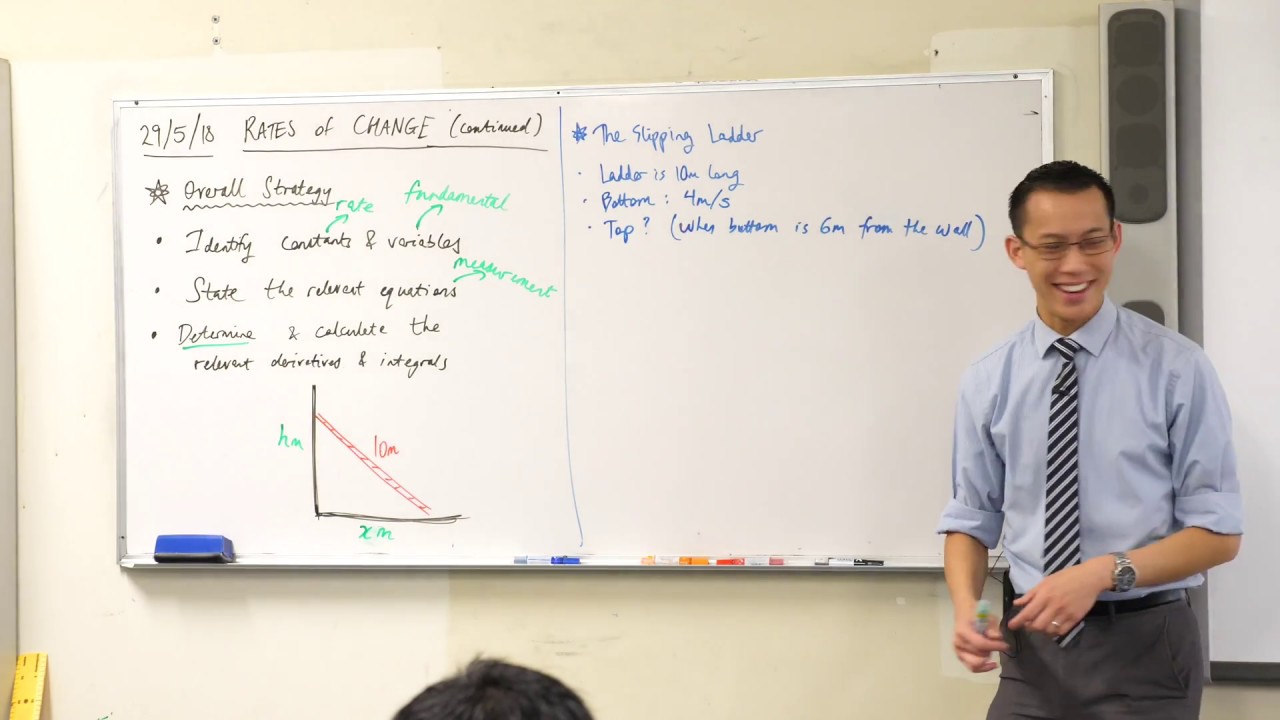 29/5/18 RATES of CHANGE (continued)
Overall Strategy
rate
fundamental
• Identify constants & variables
measurement
• State the relevant equations
• Determine & calculate the
relevant derivatives & integrals
hm
10m
xm
The Slipping Ladder
· Ladder is 10m long
· Bottom : 4m/s
· Top? (when bottom is 6m from the wall)